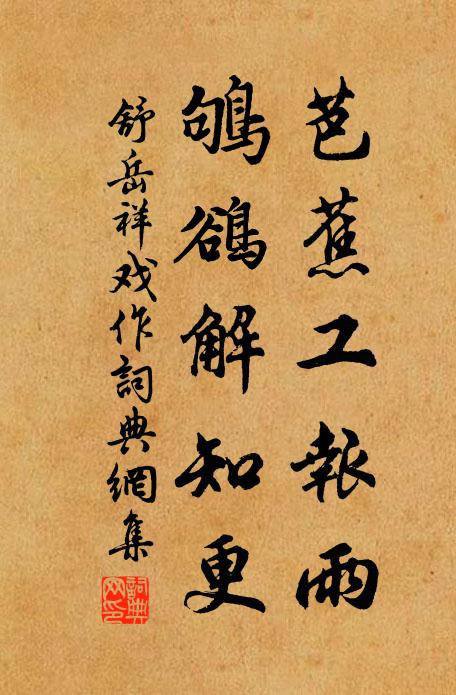 芭蕉工報雨
鴝鵒解知更
舒岳祥戏作詞典網集
詞典网印